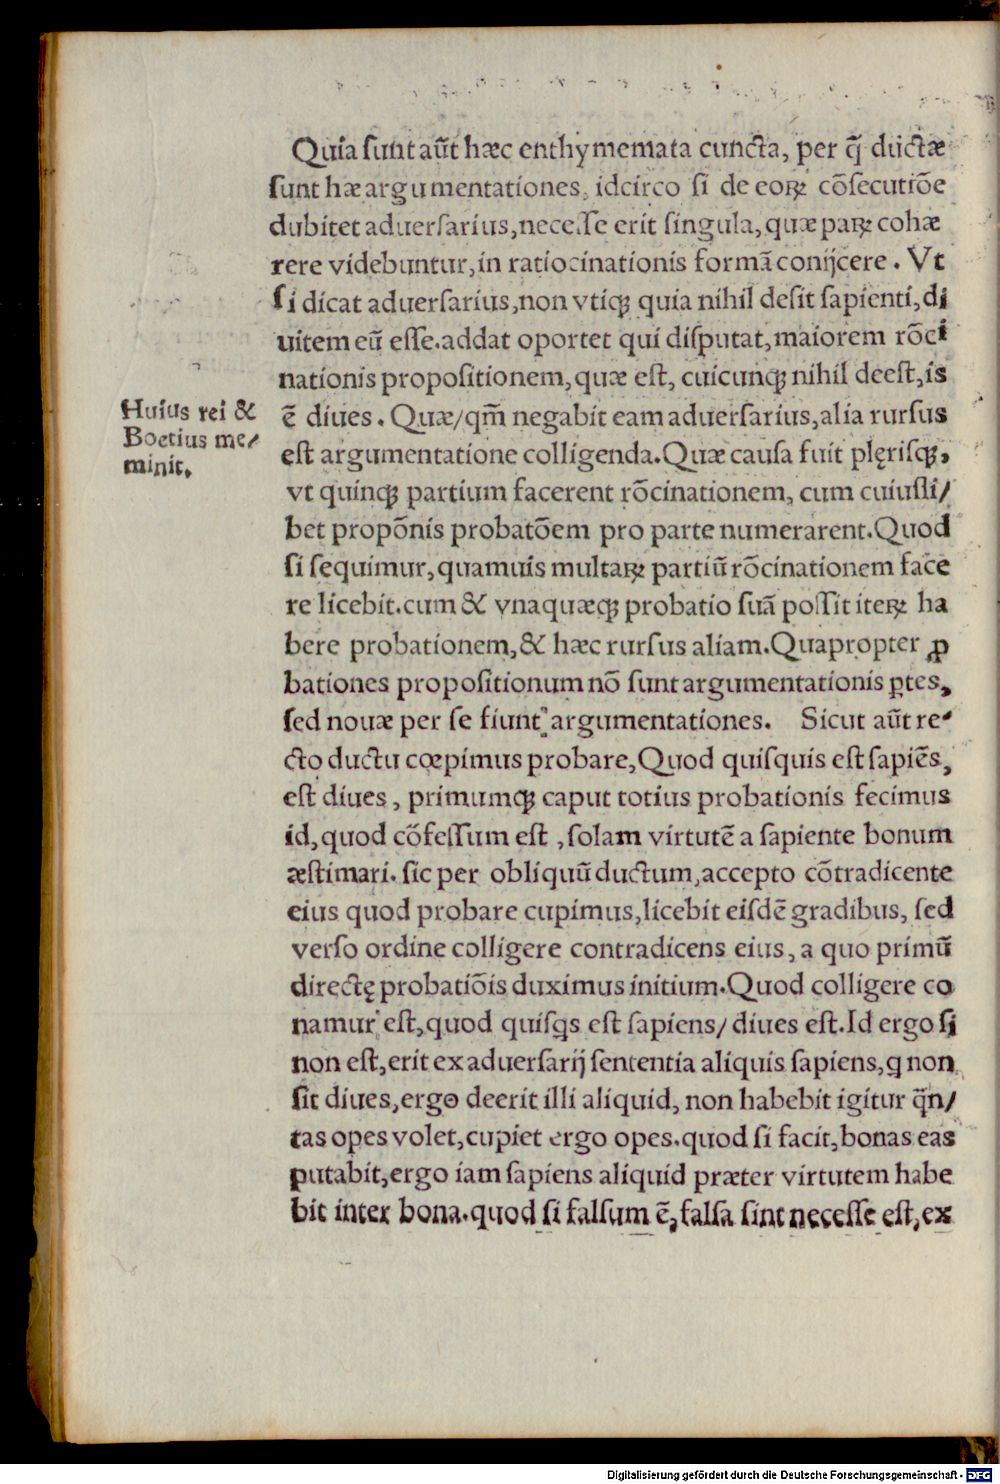 Quia sunt aūt hæc enthymemata cuncta, per q̄ ductæ
sunt hæ argumentationes, idcirco si de eoꝝ cōsecutiōe
dubitet aduersarius, necesse erit singula, quæ paꝝ cohæ
rere videbuntur, in ratiocinationis formā conijcere. Vt
si dicat aduersarius, non vtiqꝫ quia nihil desit sapienti, di
uitem eū esse. addat oportet qui disputat, maiorem rōci
nationis propositionem, quæ est, cuicunqꝫ nihil deest, is
ē diues. Quæ/qm̄ negabit eam aduersarius, alia rursus
est argumentatione colligenda. Quæ causa fuit plęrisqꝫ,
vt quinqꝫ partium facerent rōcinationem, cum cuiusli/
bet propōnis probatōem pro parte numerarent. Quod
si sequimur, quamuis multaꝝ partiū rōcinationem face
re licebit. cum & vnaquæqꝫ probatio suā possit iteꝝ ha
bere probationem, & hæc rursus aliam. Quapropter ꝓ
bationes propositionum nō sunt argumentationis ꝑtes,
sed nouæ per se fiunt argumentationes. Sicut aūt re/
cto ductu cœpimus probare, Quod quisquis est sapiēs,
est diues, primumqꝫ caput totius probationis fecimus
id, quod cōfessum est, solam virtutē a sapiente bonum
æstimari. sic per obliquū ductum, accepto cōtradicente
eius quod probare cupimus, licebit eisdē gradibus, sed
verso ordine colligere contradicens eius, a quo primū
directę probatiōis duximus initium. Quod colligere co
namur est, quod quisqs est sapiens/ diues est. Id ergo si
non est, erit ex aduersarij sententia aliquis sapiens, q non
sit diues, ergo deerit illi aliquid, non habebit igitur q̄n/
tas opes volet, cupiet ergo opes. quod si facit, bonas eas
putabit, ergo iam sapiens aliquid præter virtutem habe
bit inter bona. quod si falsum ē, falsa sint necesse est, ex
Huius rei &
Boetius me/
minit.
Digitalisierung gefördert durch die Deutsche Forschungsgemeinschaft - DFG